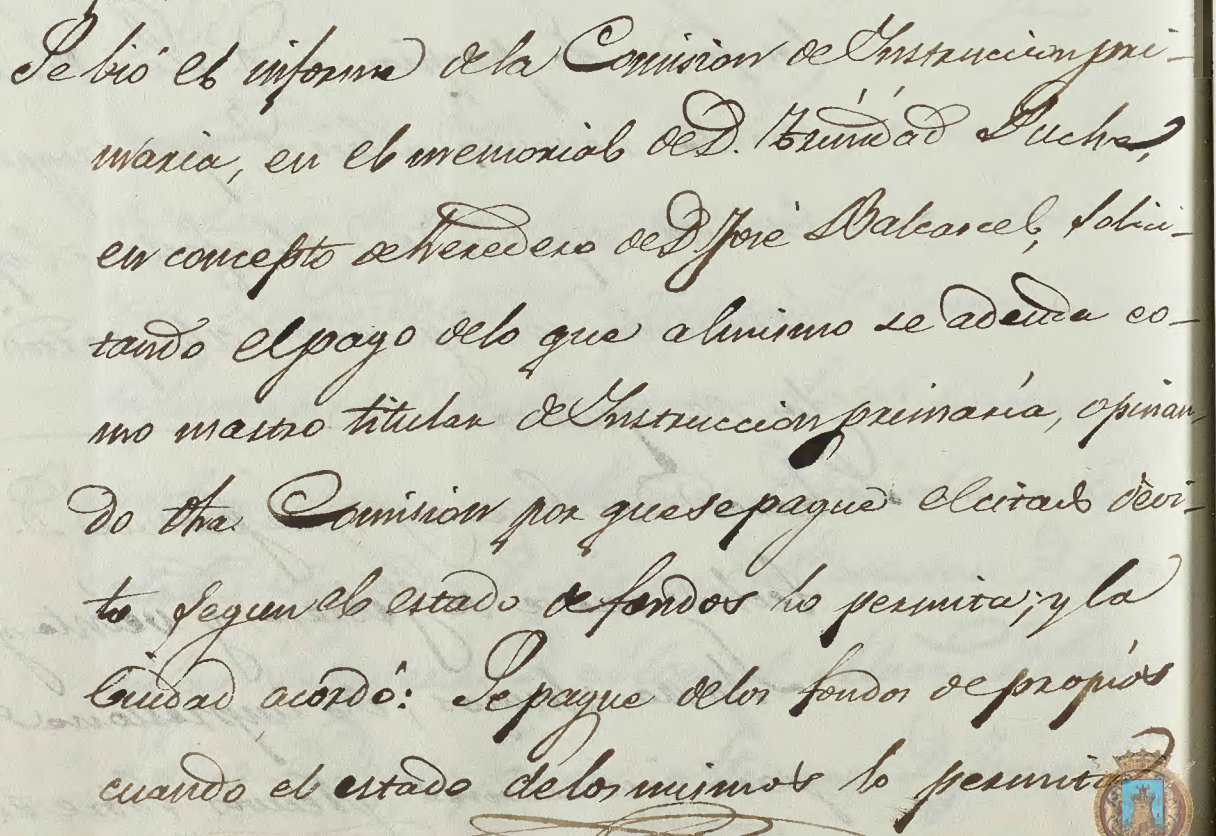 Se bió el informe de la Comision de Instruccion pri-
maria, en el memorial de D. Trinidad Pucha,
en concepto de heredero de D José Balcarcel, solici-
tando el pago de lo que al mismo se adeuda co-
mo mastro titular de Instruccion primaria, opinan-
do dha Comision por que se pague el citado devi-
to segun el estado de fondos lo permita; y la
Ciudad acordó: Se pague de los fondos de propios
cuando el estado de los mismos lo permita